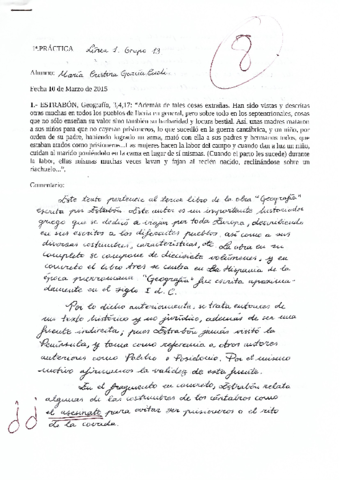 1ª PRÁCTICA Línea 1. Grupo 13
8
Alumno: María Cristina García
Fecha 10 de Marzo de 2015
1.- ESTRABÓN, Geografía, 3,4,17: "Además de tales cosas extrañas. Han sido vistas y descritas
otras muchas en todos los pueblos de Iberia en general, pero sobre todo en los septentrionales, cosas
que no sólo enseñan su valor sino también su barbaridad y locura bestial. Así, unas madres mataron
a sus niños para que no cayeran prisioneros, lo que sucedió en la guerra cantábrica, y un niño, por
orden de su padre, haciendo logrado un arma, mató con ella a sus padres y hermanos todos, que
estaban atados como prisioneros... Las mujeres hacen la labor del campo y cuando dan a luz un niño,
cuidan al marido poniéndolo en la cama en lugar de sí mismas. (Cuando el parto les sucede) durante
la labor, ellas mismas muchas veces lavan y fajan al recién nacido, reclinándose sobre un
riachuelo...".
Comentario:
Este texto pertenece al tercer libro de la obra "Geografía"
escrita por Estrabón. Este autor es un importante historiador
griego que se dedicó a viajar por toda Europa, describiendo
en sus escritos a los diferentes pueblos, así como a sus
diversas costumbres, características, etc. La obra en su
completo se compone de diecisiete volúmenes, y en
concreto el libro tres se centra en la Hispania de la
época prerromana. "Geografía" fue escrita aproxima-
damente en el siglo I d. C.
Por lo dicho anteriormente, se trata entonces de
un texto histórico y no jurídico, además de ser una
fuente indirecta, pues Estrabón jamás visitó la
Península, y toma como referencia a otros autores
anteriores como Polibio o Posidonio. Por el mismo
motivo afirmamos la validez de esta fuente.
En el fragmento en concreto, Estrabón relata
algunas de las costumbres de los cántabros como
el asesinato para evitar ser prisioneros o el rito
de la covada.